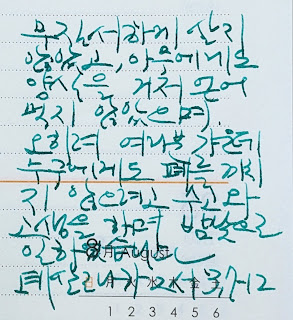 무질서하게 살지
않았고, 아무에게도
양식을 거저 얻어
먹지 않았으며,
오히려 여러분 가운데
누구에게도 폐를 끼치
지 않으려고 수고와
고생을 하며 밤낮으로
일하였습니다.
8月 August
日 月 火 水 木 金 土
데살로니가후서 3,7-12
1 2 3 4 5 6